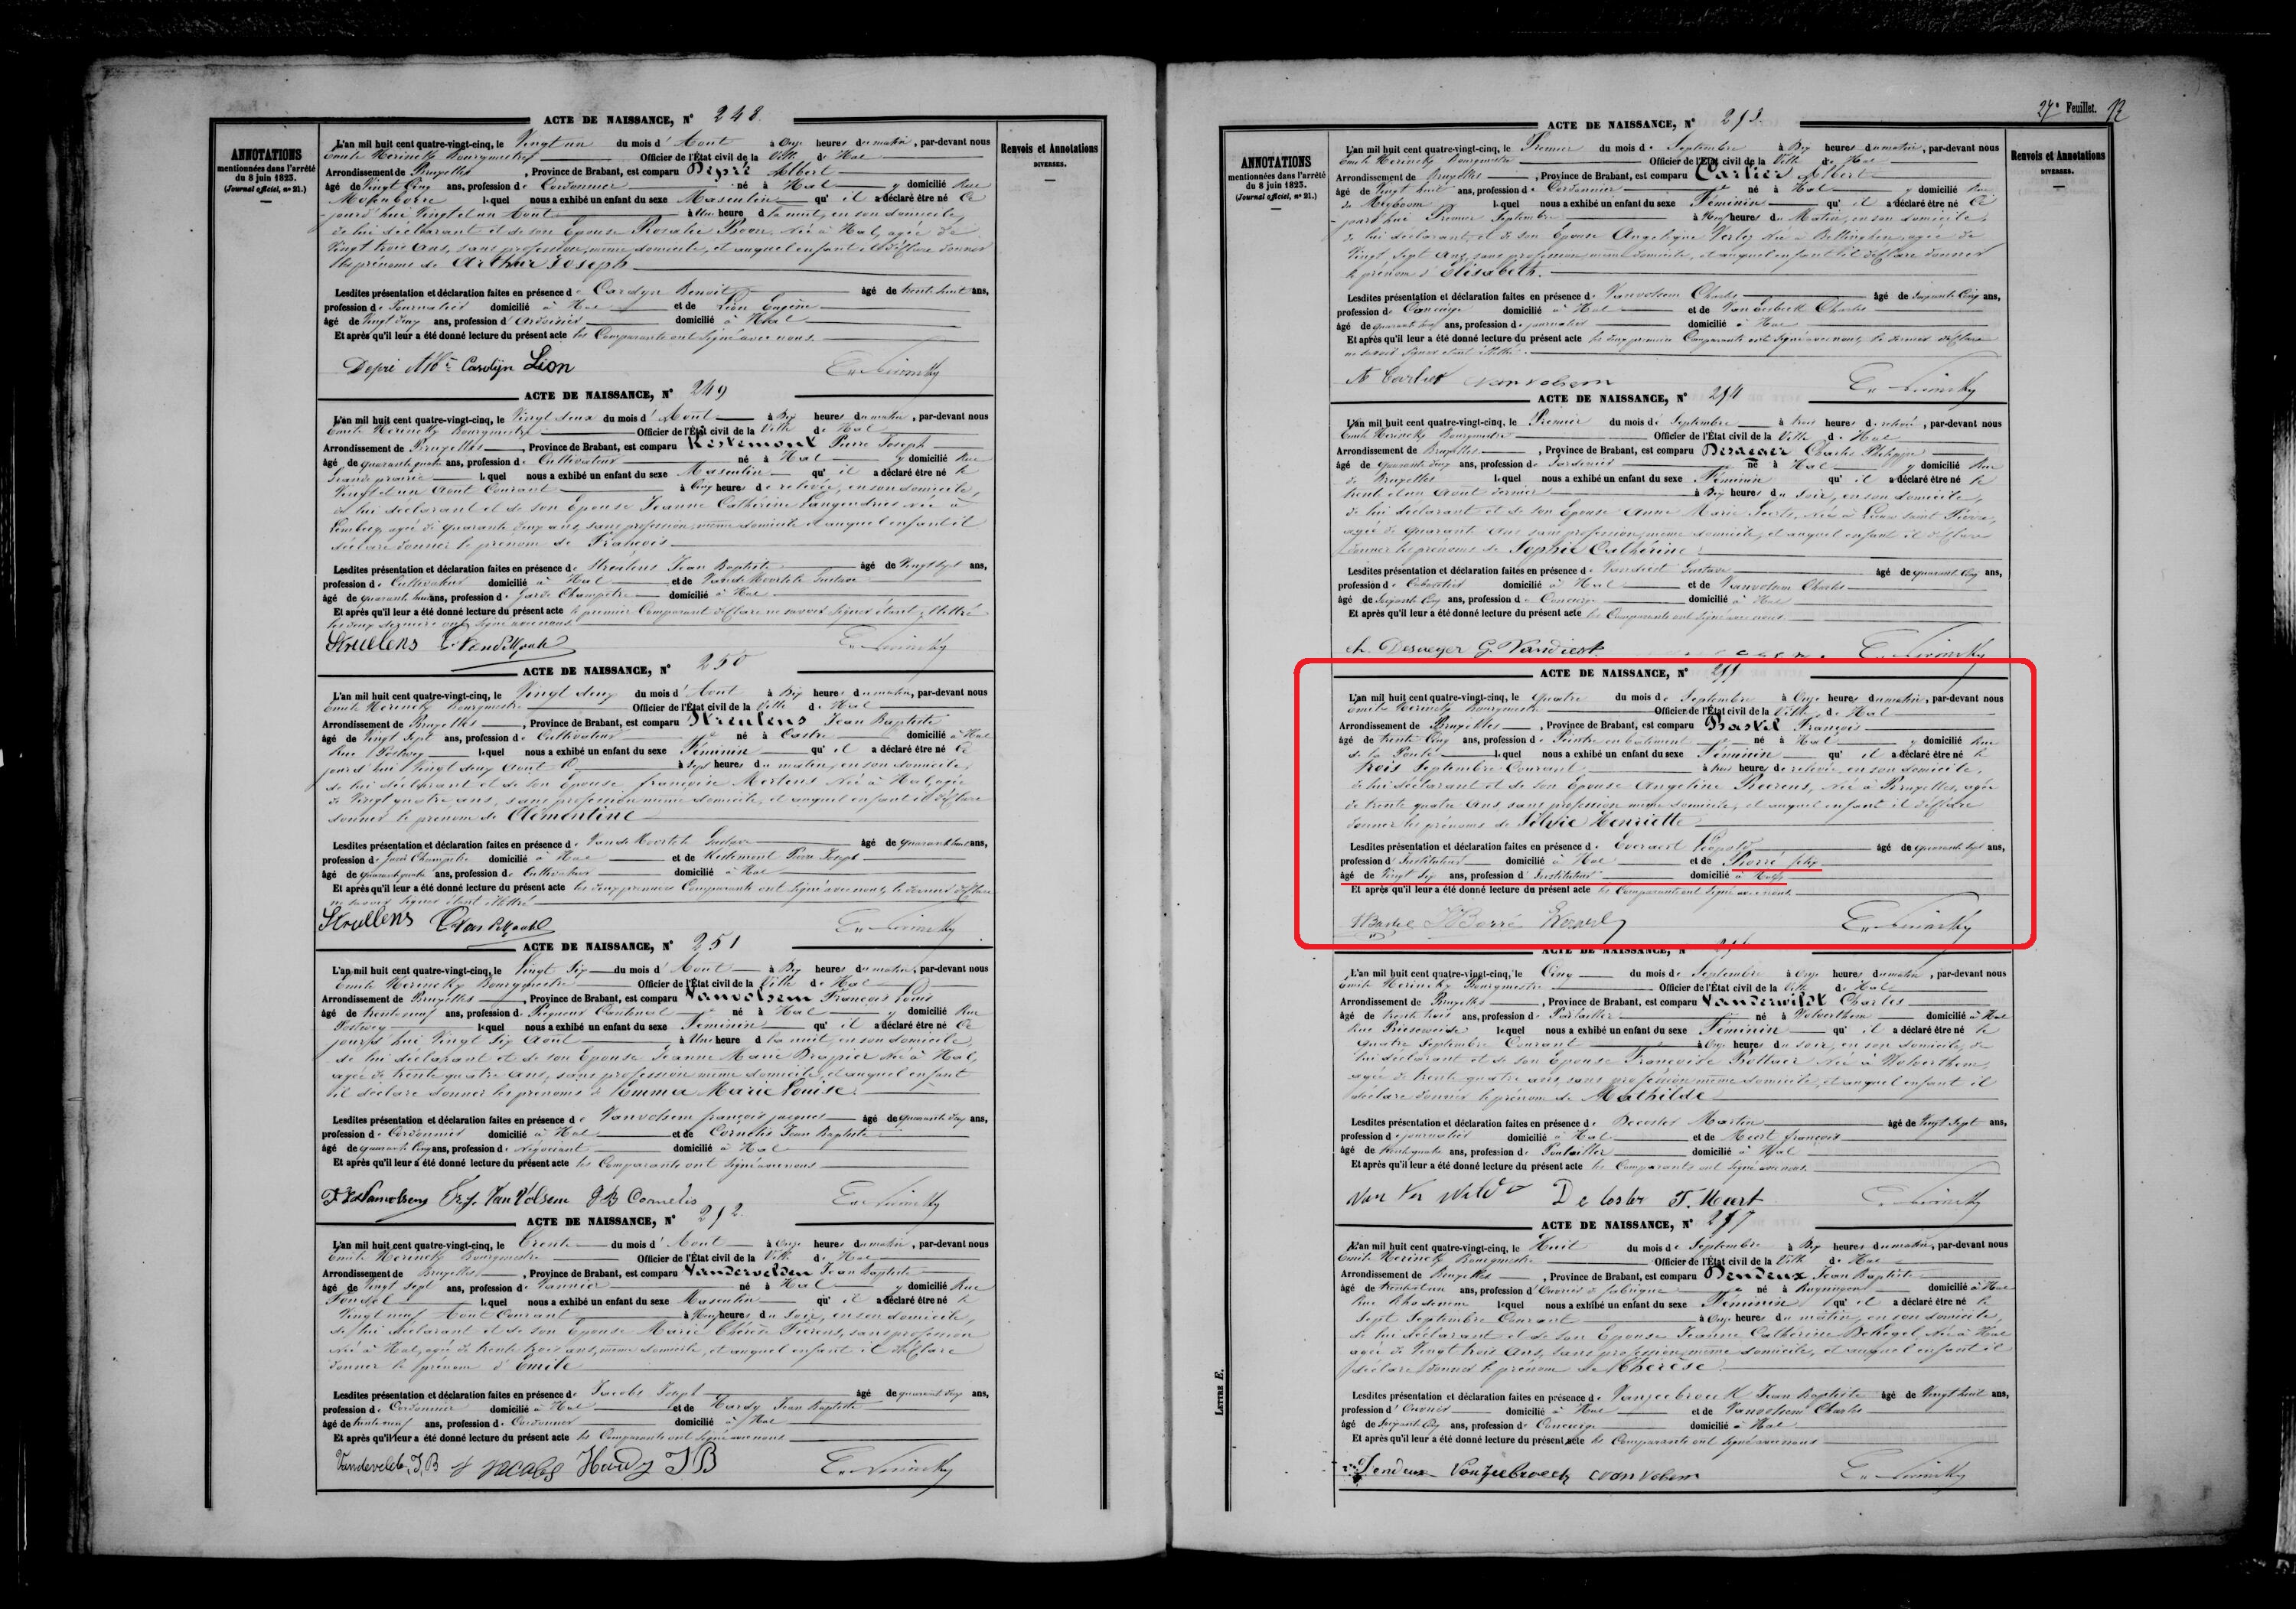 ACTE DE NAISSANCE, N° 248.
ANNOTATIONS
mentionnées dans l'arrêté
du 8 juin 1823.
(Journal officiel, n° 21.)
Renvois et Annotations
DIVERSES.
L'an mil huit cent quatre-vingt-cinq, le Vingt un du mois d'Aout à Onze heures du matin, par-devant nous
Emile Nerincky Bourgmestre Officier de l'État civil de la Ville de Hal
Arrondissement de Bruxelles, Province de Brabant, est comparu Dépré Albert
âgé de Vingt Cinq ans, profession de Cordonnier né à Hal y domicilié Rue
lequel nous a exhibé un enfant du sexe Masculin qu'il a déclaré être né Ce
jourd'hui Vingt et un Aout à Une heure d la nuit, en son domicile,
de lui déclarant et de son Epouse Rosalie Boon, Née à Hal, agée de
Vingt trois Ans, sans profession, même domicile, et auquel enfant il déclare donner
les prénoms de Arthur Joseph
Lesdites présentation et déclaration faites en présence de Carolyn Benoit âgé de trente huit ans,
profession de Journalier domicilié à Hal et de Lion Eugène
âgé de Vingt deux ans, profession d'Ardoisier domicilié à Hal
Et après qu'il leur a été donné lecture du présent acte les Comparants ont signé avec nous.
Carolyn Lion
ACTE DE NAISSANCE, N° 249
L'an mil huit cent quatre-vingt-cinq, le Vingt deux du mois d'Aout à Dix heures du matin, par-devant nous
Emile Nerincky Bourgmestre Officier de l'État civil de la Ville de Hal
Arrondissement de Bruxelles, Province de Brabant, est comparu Kestemont Pierre Joseph
âgé de quarante quatre ans, profession de Cultivateur né à Hal y domicilié Rue
Grande prairie lequel nous a exhibé un enfant du sexe Masculin qu'il a déclaré être né le
Vingt et un Aout Courant à Cinq heures de relevée, en son domicile,
de lui déclarant et de son Epouse Jeanne Catherine Langendries Née à
Lembecq, agée de quarante deux ans, sans profession, même domicile et auquel enfant il
déclare donner le prénom de François
Lesdites présentation et déclaration faites en présence de Strulens Jean Baptiste âgé de Vingt Sept ans,
profession de Cultivateur domicilié à Hal et de Gustave
âgé de quarante huit ans, profession de Garde Champêtre domicilié à Hal
Et après qu'il leur a été donné lecture du présent acte le premier Comparant déclare ne savoir signer étant illettré
les deux derniers ont signé avec nous.
Strullens
ACTE DE NAISSANCE, N° 250
L'an mil huit cent quatre-vingt-cinq, le Vingt deux du mois d'Aout à Dix heures du matin, par-devant nous
Emile Nerincky Bourgmestre Officier de l'État civil de la Ville de Hal
Arrondissement de Bruxelles, Province de Brabant, est comparu Strulens Jean Baptiste
âgé de Vingt Sept ans, profession de Cultivateur né à Castre domicilié à Hal
Rue Postweg lequel nous a exhibé un enfant du sexe Féminin qu'il a déclaré être né Ce
jourd'hui Vingt deux Aout à Sept heures du matin, en son domicile,
de lui déclarant et de son Epouse françoise Mertens Née à Hal, agée
de Vingt quatre ans, sans profession même domicile, et auquel enfant il déclare
donner le prénom de Clémentine
Lesdites présentation et déclaration faites en présence de Gustave âgé de quarante huit ans,
profession de Garde Champêtre domicilié à Hal et de Kestemont Pierre Joseph
âgé de quarante quatre ans, profession de Cultivateur domicilié à Hal
Et après qu'il leur a été donné lecture du présent acte les deux premiers Comparants ont signé avec nous, le dernier déclare
ne savoir signer étant illettré
Strullens
ACTE DE NAISSANCE, N° 251
L'an mil huit cent quatre-vingt-cinq, le Vingt Six du mois d'Aout à Dix heures du matin, par-devant nous
Emile Nerincky Bourgmestre Officier de l'État civil de la Ville de Hal
Arrondissement de Bruxelles, Province de Brabant, est comparu Vanvolsem François Louis
âgé de trente neuf ans, profession de Piqueur Cantonal né à Hal y domicilié Rue
Postweg lequel nous a exhibé un enfant du sexe Féminin qu'il a déclaré être né Ce
jourd'hui Vingt Six Aout à Une heure d la nuit, en son domicile,
de lui déclarant et de son Epouse Jeanne Marie Drapier Née à Hal,
agée de trente quatre ans, sans profession même domicile, et auquel enfant
il déclare donner les prénoms d'Emma Marie Louise
Lesdites présentation et déclaration faites en présence de Vanvolsem françois jacques âgé de quarante deux ans,
profession de Cordonnier domicilié à Hal et de Cornélis Jean Baptiste
âgé de quarante Cinq ans, profession de Négociant domicilié à Hal
Et après qu'il leur a été donné lecture du présent acte les Comparants ont signé avec nous
Van Volsem J B Cornelis
ACTE DE NAISSANCE, N° 252.
L'an mil huit cent quatre-vingt-cinq, le Trente du mois d'Aout à Onze heures du matin, par-devant nous
Emile Nerincky Bourgmestre Officier de l'État civil de la Ville de Hal
Arrondissement de Bruxelles, Province de Brabant, est comparu Vandervelden Jean Baptiste
âgé de Vingt Sept ans, profession de Vannier né à Hal y domicilié Rue
lequel nous a exhibé un enfant du sexe Masculin qu'il a déclaré être né le
Vingt neuf Aout Courant à Neuf heures du Soir, en son domicile,
de lui déclarant et de son Epouse Marie Thérèse Fierens, sans profession
Née à Hal, agée de trente trois ans, même domicile, et auquel enfant il déclare
donner le prénom d'Emile
Lesdites présentation et déclaration faites en présence de Jacobs Joseph âgé de quarante deux ans,
profession de Cordonnier domicilié à Hal et de Hardy Jean Baptiste
âgé de trente neuf ans, profession de Cordonnier domicilié à Hal
Et après qu'il leur a été donné lecture du présent acte les Comparants ont signé avec nous
J Jacobs Hardy J B
27e Feuillet.
ACTE DE NAISSANCE, N° 253.
ANNOTATIONS
mentionnées dans l'arrêté
du 8 juin 1823.
(Journal officiel, n° 21.)
Renvois et Annotations
DIVERSES.
L'an mil huit cent quatre-vingt-cinq, le Premier du mois de Septembre à Dix heures du matin, par-devant nous
Emile Nerincky Bourgmestre Officier de l'État civil de la Ville de Hal
Arrondissement de Bruxelles, Province de Brabant, est comparu Carlier Albert
âgé de Vingt huit ans, profession de Cordonnier né à Hal y domicilié Rue
de Meyboom lequel nous a exhibé un enfant du sexe Féminin qu'il a déclaré être né Ce
jourd'hui Premier Septembre à Neuf heures du Matin, en son domicile,
de lui déclarant, et de son Epouse Angelique Née à Bellinghen, agée de
Vingt Sept Ans, sans profession, même domicile, et auquel enfant il déclare donner
le prénom d'Elisabeth.
Lesdites présentation et déclaration faites en présence de Vanvolsem Charles âgé de Soixante Cinq ans,
profession de Concierge domicilié à Hal et de Charles
âgé de quarante ans, profession de journalier domicilié à Hal
Et après qu'il leur a été donné lecture du présent acte les deux premiers Comparants ont signé avec nous, le dernier déclare
ne savoir signer étant illettré.
A Carlier vanvolsem
ACTE DE NAISSANCE, N° 254
L'an mil huit cent quatre-vingt-cinq, le Premier du mois de Septembre à trois heures de relevée, par-devant nous
Emile Nerincky Bourgmestre Officier de l'État civil de la Ville de Hal
Arrondissement de Bruxelles, Province de Brabant, est comparu Desaeger Charles Philippe
âgé de quarante deux ans, profession de Jardinier né à Hal y domicilié Rue
de Bruxelles lequel nous a exhibé un enfant du sexe Féminin qu'il a déclaré être né le
trente et un Aout dernier à Dix heures du Soir, en son domicile,
de lui déclarant et de son Epouse Anne Marie Née à Leeuw Saint Pierre,
agée de quarante Ans sans profession, même domicile, et auquel enfant il déclare
donner les prénoms de Sophie Cathérine
Lesdites présentation et déclaration faites en présence de Vandiest Gustave âgé de quarante Cinq ans,
profession de Cabaretier domicilié à Hal et de Vanvolsem Charles
âgé de Soixante Cinq ans, profession de Concierge domicilié à Hal
Et après qu'il leur a été donné lecture du présent acte les Comparants ont signé avec nous
ch. Desaeger G. Vandiest.
ACTE DE NAISSANCE, N° 255
L'an mil huit cent quatre-vingt-cinq, le Quatre du mois de Septembre à Onze heures du matin, par-devant nous
Emile Nerincky Bourgmestre Officier de l'État civil de la Ville de Hal
Arrondissement de Bruxelles, Province de Brabant, est comparu Bastel François
âgé de trente Cinq ans, profession de Peintre en bâtiment né à Hal y domicilié Rue
de la Poste lequel nous a exhibé un enfant du sexe Féminin qu'il a déclaré être né le
trois Septembre Courant à trois heures de relevée, en son domicile,
de lui déclarant et de son Epouse Angeline Née à Bruxelles, agée
de trente quatre Ans sans profession même domicile, et auquel enfant il déclare
donner les prénoms de Silvie Henriette
Lesdites présentation et déclaration faites en présence de Everaert Léopold âgé de quarante Sept ans,
profession d'Instituteur domicilié à Hal et de Borré felix
âgé de Vingt Six ans, profession d'Instituteur domicilié à
Et après qu'il leur a été donné lecture du présent acte les Comparants ont signé avec nous
Borré
ACTE DE NAISSANCE, N° 256
L'an mil huit cent quatre-vingt-cinq, le Cinq du mois de Septembre à Onze heures du matin, par-devant nous
Emile Nerincky Bourgmestre Officier de l'État civil de la Ville de Hal
Arrondissement de Bruxelles, Province de Brabant, est comparu Charles
âgé de trente trois ans, profession de né à Wolverthem domicilié à Hal
Rue lequel nous a exhibé un enfant du sexe Féminin qu'il a déclaré être né le
quatre Septembre Courant à Onze heures du soir, en son domicile, de
lui déclarant et de son Epouse Françoise Née à Wolverthem,
agée de trente quatre ans, sans profession même domicile, et auquel enfant il
déclare donner le prénom de Mathilde
Lesdites présentation et déclaration faites en présence de Decoster Martin âgé de Vingt Sept ans,
profession de journalier domicilié à Hal et de Meert françois
âgé de trente quatre ans, profession de domicilié à Hal
Et après qu'il leur a été donné lecture du présent acte les Comparants ont signé avec nous
De Coster F. Meert
ACTE DE NAISSANCE, N° 257
L'an mil huit cent quatre-vingt-cinq, le Huit du mois de Septembre à Dix heures du matin, par-devant nous
Emile Nerincky Bourgmestre Officier de l'État civil de la Ville de Hal
Arrondissement de Bruxelles, Province de Brabant, est comparu Dendeux Jean Baptiste
âgé de trente et un ans, profession d'Ouvrier de fabrique né à domicilié à Hal
Rue lequel nous a exhibé un enfant du sexe Féminin qu'il a déclaré être né le
Sept Septembre Courant à Onze heures du matin, en son domicile,
de lui déclarant et de son Epouse Jeanne Catherine Née à Hal
agée de Vingt trois Ans, sans profession, même domicile, et auquel enfant il
déclare donner le prénom de Thérèse
Lesdites présentation et déclaration faites en présence de Jean Baptiste âgé de Vingt huit ans,
profession d'Ouvrier domicilié à Hal et de Vanvolsem Charles
âgé de Soixante Cinq ans, profession de Concierge domicilié à Hal
Et après qu'il leur a été donné lecture du présent acte les Comparants ont signé avec nous
Dendeux vanvolsem
LETTRE E.